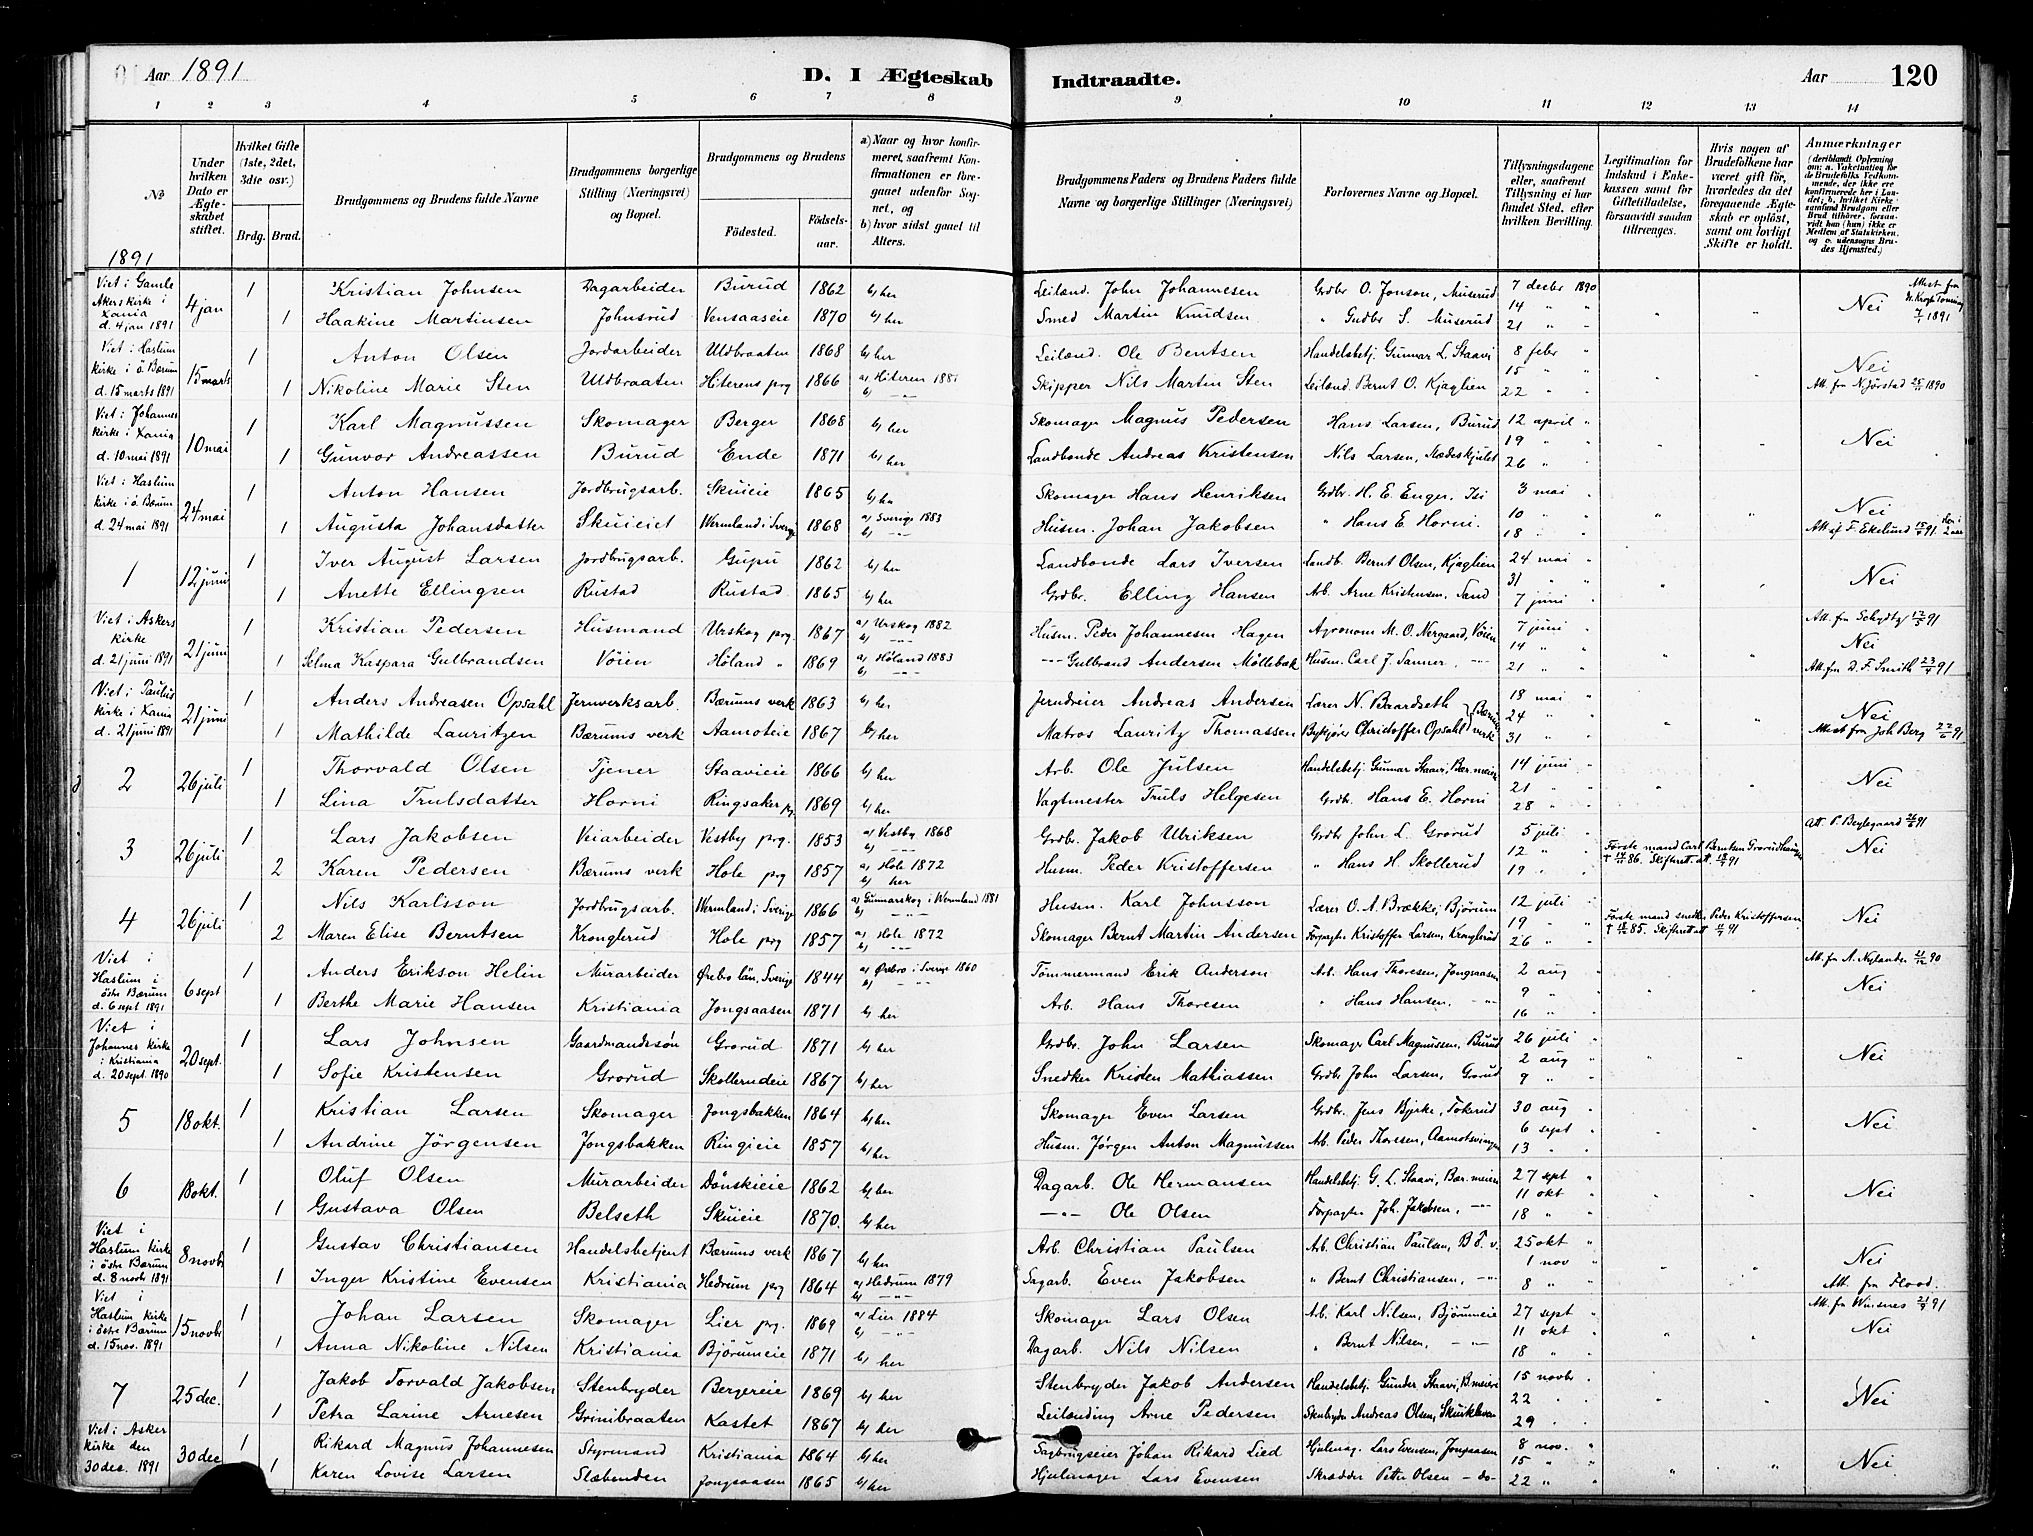 Aar 1891
D. I Ægteskab
Indtraadte.
Aar
120
1 2 3 4 5 6 7 8 9 10 11 12 13 14
No
Under hvilken Dato er Ægteskabet stiftet.
Hvilket Gifte (1ste, 2det, 3die osv.)
Brdg. Brud.
Brudgommens og Brudens fulde Navne
Brudgommens borgerlige Stilling (Næringsvei) og Bopæl.
Brudgommens og Brudens
Födested.
Födselsaar.
a) Naar og hvor konfirmeret, saafremt Konfirmationen er foregaaet udenfor Sognet, og
b) hvor sidst gaaet til Alters.
Brudgommens Faders og Brudens Faders fulde Navne og borgerlige Stillinger (Næringsvei)
Forlovernes Navne og Bopæl.
Tillysningsdagene eller, saafremt Tillysning ei har fundet Sted, efter hvilken Bevilling.
Legitimation for Indskud i Enkekassen samt for Giftetilladelse, forsaavidt saadan tiltrænges.
Hvis nogen af Brudefolkene har været gift för, hvorledes da det foregaaende Ægteskab er oplöst, samt om lovligt Skifte er holdt.
Anmærkninger
1891
Viet i Gamle Akers kirke i Xania d. 4 jan 1891 4 jan 1 Kristian Johnsen Dagarbeider Burud 1862 b) her Leiland. John Johannesen Grdbr O. Jonson, Muserud 7 decbr 1890 Nei
1 Haakine Martinsen Johnsrud Vensaaseie 1870 b) her Smed Martin Knudsen " Gudbr S. Muserud 14 " 21 "
Viet i Haslum kirke i ö Bærum d. 15 marts 1891 15 marts 1 Anton Olsen Jordarbeider Uldbraaten 1868 b) her Leilænd. Ole Bentsen Handelsbetj. Gunnar L. Staavi 8 febr " Nei
1 Nikoline Marie Sten Uldbraaten Hiterens prg 1866 a) Hiteren 1881 b) -"- Skipper Nils Martin Sten Leiland. Bernt O. Kjaglien 15 " 22 " Att. fra N. Jörstad 25/11 1890
Viet i Johannes kirke i Xania d. 10 mai 1891 10 mai 1 Karl Magnussen Skomager Berger 1868 b) her Skomager Magnus Pedersen Hans Larsen, Burud 12 april " Nei
1 Gunvor Andreassen Burud Ende 1871 b) her Landbonde Andreas Kristensen Nils Larsen, Stædeskjulet 19 " 26 "
Viet i Haslum kirke i ö Bærum d. 24 mai 1891 24 mai 1 Anton Hansen Jordbrugsarb. Skuieie 1865 b) her Skomager Hans Henriksen Grdbr. H. E. Enger, Isi 3 mai " Nei
1 Augusta Johansdatter Skuieiet Wermland i Sverige 1868 a) Sverige 1883 b) -"- Husm. Johan Jakobsen " Hans E. Horni. 10 " 18 " Att af F. Ekelund 15/5 91
1 12 juni 1 Iver August Larsen Jordbrugsarb. Gupu 1862 b) her Landbonde Lars Iversen Landb. Bernt Olsen, Kjaglien 24 mai " Nei
1 Anette Ellingsen Rustad Rustad 1865 b) her Grdbr. Elling Hansen Arb. Arne Kristensen, Sand 31 " 7 juni "
Viet i Askers kirke d. 21 juni 1891 21 juni 1 Kristian Pedersen Husmand Urskog prg 1867 a) Urskog 1882 b) -"- Husm. Peder Johannesen Hagen Agronom M. O. Nergaard, Vöien 7 juni " Nei
1 Selma Kaspara Gulbrandsen Vöien Höland " 1869 a) Höland 1883 b) -"- -"- Gulbrand Andersen Möllebak Husm. Carl J. Sanner, -"- 14 " 21 " Att. fra D. F. Smith 23/4 91
Viet i Paulus kirke i Xania d. 21 juni 1891 21 juni 1 Anders Andreasen Opsahl Jernverksarb. Bærums verk 1863 b) her Jerndreier Andreas Andersen Lærer N. Baardseth 18 mai " Nei
1 Mathilde Lauritzen Bærums verk Aamoteie 1867 b) her Matros Lauritz Thomassen Bykjører Christoffer Opsahl Bærums verk 24 " 31 " Attest fra Joh Berg 22/6 91
2 26 juli 1 Thorvald Olsen Tjener Staavieie 1866 b) her Arb. Ole Julsen Handelsbetj. Gunnar Staavi, Bær. meieri 14 juni " Nei
1 Lina Trulsdatter Horni Ringsaker prg 1869 b) her Vagtmester Truls Helgesen Grdbr. Hans E. Horni 21 " 28 "
3 26 juli 1 Lars Jakobsen Veiarbeider Vestby prg. 1853 a) Vestby 1868 b) -"- Grdbr. Jakob Ulriksen Grdbr John L. Grorud 5 juli " Nei
2 Karen Pedersen Bærums verk Hole prg 1857 a) Hole 1872 b) her Husm. Peder Kristoffersen " Hans H. Skollerud 12 " 19 " Förste mand Carl Berntsen Grorudhaugen
4 26 juli 1 Nils Karlsson Jordbrugsarb. Wermland i Sverige 1866 a) Gunnarskog i Wermland 1881 b) -"- Husm. Karl Johnsson Lærer O. A. Brække, Bjørum 12 juli " Nei
2 Maren Elise Berntsen Kronglerud Hole prg 1857 a) Hole 1872 b) -"- Skomager Bernt Martin Andersen Forpagter Kristoffer Larsen, Kronglerud 19 " 26 " Förste mand snedker Peder Kristoffersen
Viet i Haslum i östre Bærum d. 6 sept 1891 6 sept 1 Anders Erikson Helin Murarbeider Örebro län, Sverige 1844 a) Örebro i Sverige 1860 b) -"- Tömmermand Erik Anderson Arb. Hans Thoresen, Jongsaasen 2 aug " Nei
1 Berthe Marie Hansen Kristiania Jongsaasen 1871 b) her Arb. Hans Thoresen " Hans Hansen, -"- 9 " 16 "
Viet i Johannes kirke i Kristiania d. 20 sept. 1890 20 sept. 1 Lars Johnsen Gaardmandssön Grorud 1871 b) her Grdbr. John Larsen Skomager Carl Magnussen, Burud 26 juli " Nei
1 Sofie Kristensen Grorud Skollerudeie 1867 b) her Snedker Kristen Mathiassen Grdbr John Larsen, Grorud 2 aug " 9 "
5 18 okt. 1 Kristian Larsen Skomager Jongsbakken 1864 b) her Skomager Even Larsen Grdbr. Jens Bjerke, Tokerud 30 aug " Nei
1 Andrine Jörgensen Jongsbakken Ringieie 1857 b) her Husm. Jörgen Anton Magnussen Arb. Peder Thoresen, Aamotsvingen 6 sept " 13 "
6 18 okt. 1 Oluf Olsen Murarbeider Dönskieie 1862 b) her Dagarb. Ole Hermansen Handelsbetj. G. L. Staavi, Bær. meieri 27 sept " Nei
1 Gustava Olsen Belseth Skuieie 1870. b) her -"- Ole Olsen Forpagter Joh. Jakobsen, -"- 11 okt " 18 "
Viet i Haslum kirke i östre Bærum d. 8 novb 1891 8 novb 1 Gustav Christiansen Handelsbetjent Bærums verk 1867 b) her Arb. Christian Paulsen Arb. Christian Paulsen, B. v. 25 okt " Nei
1 Inger Kristine Evensen Kristiania Hedrum prg 1864 a) Hedrum 1879 b) -"- Sagarb. Even Jakobsen " Bernt Christiansen, -"- 1 nov " 8 " Att. fra Flood.
Viet i Haslum kirke i östre Bærum d. 15 nov. 1891 15 novbr 1 Johan Larsen Skomager Lier prg. 1869 a) Lier 1884 b) -"- Skomager Lars Olsen Arb. Karl Nilsen, Bjørumeie 27 sept " Att. fra Winsnes 21/9 91 Nei
1 Anna Nikoline Nilsen Kristiania Bjørumeie 1871 b) her Dagarb. Nils Nilsen " Bernt Nilsen, -"- 11 okt " 18 "
7 25 dec. 1 Jakob Torvald Jakobsen Stenbryder Bergereie 1869 b) her Stenbryder Jakob Andersen Handelsbetj. Gunder Staavi, B. meieri 15 novbr " Nei
1 Petra Larine Arnesen Grinibraaten Kastet 1867 b) her Leilænding Arne Pedersen Stenbryder Andreas Olsen, 22 " 29 "
Viet i Asker kirke den 30 dec. 1891 30 dec 1 Rikard Magnus Johannesen Styrmand Kristiania 1864 b) her Sagbrugseier Johan Rikard Lied Hjulmag. Lars Evensen, Jongsaasen 8 nov. " Nei
1 Karen Lovise Larsen Slæbenden Jongsaasen 1865 b) her Hjulmager Lars Evensen Skrædder Petter Olsen -do- 15 " 22 "